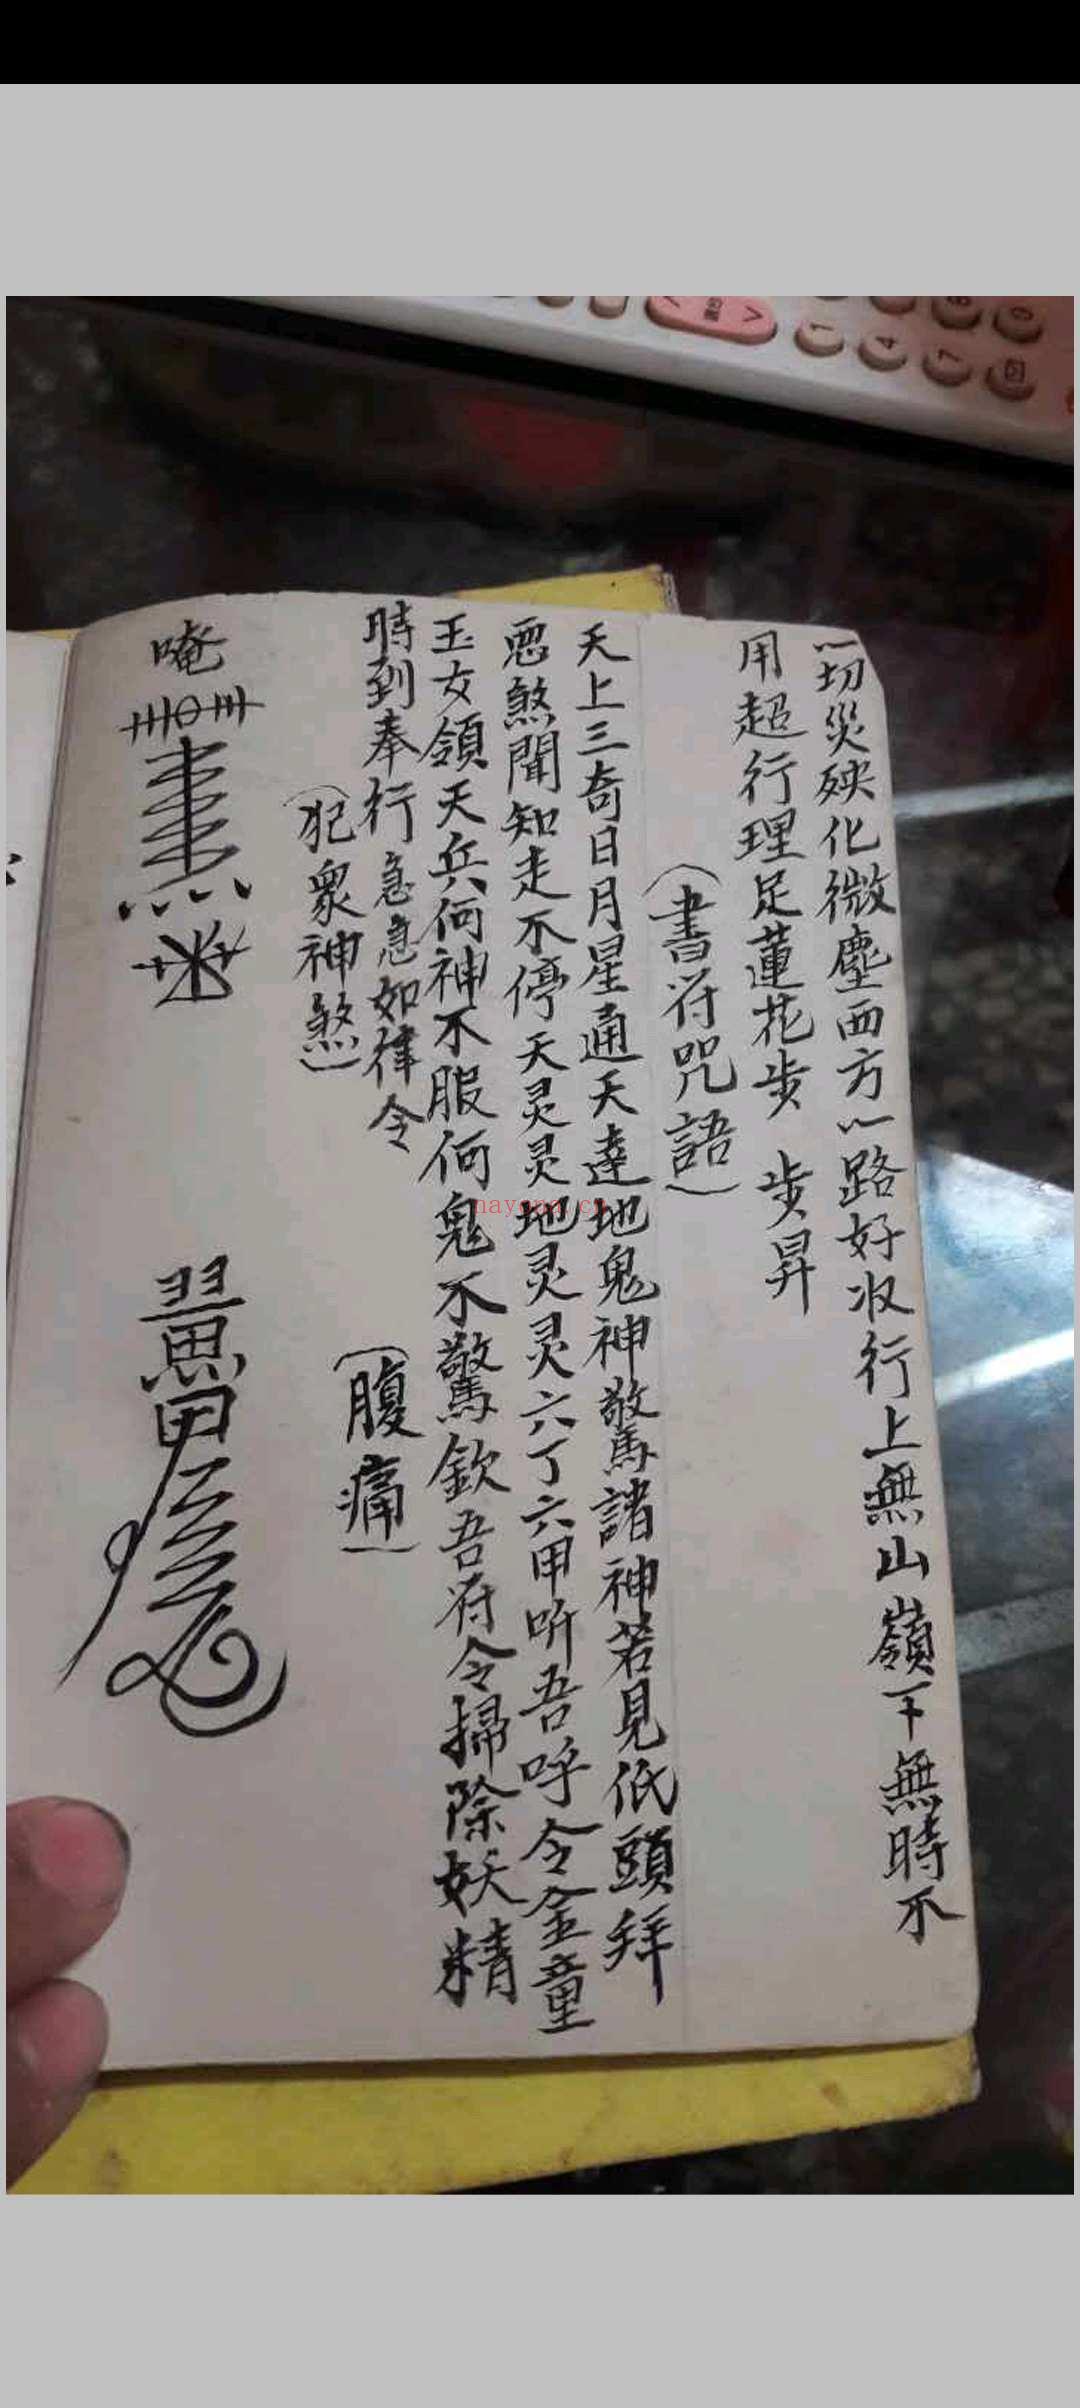 一切災殃化微塵西方一路好收行上無山嶺下無時不
用超行理足蓮花步步昇
(書符咒語)
天上三奇日月星通天達地鬼神驚諸神若見低頭拜
惡煞聞知走不停天灵灵地灵灵六丁六甲听吾呼令金童
玉女領天兵何神不服何鬼不驚欽吾符令掃除妖精
時到奉行急急如律令
(犯衆神煞)
(腹痛)
唵
nayona.cn
1
4
7